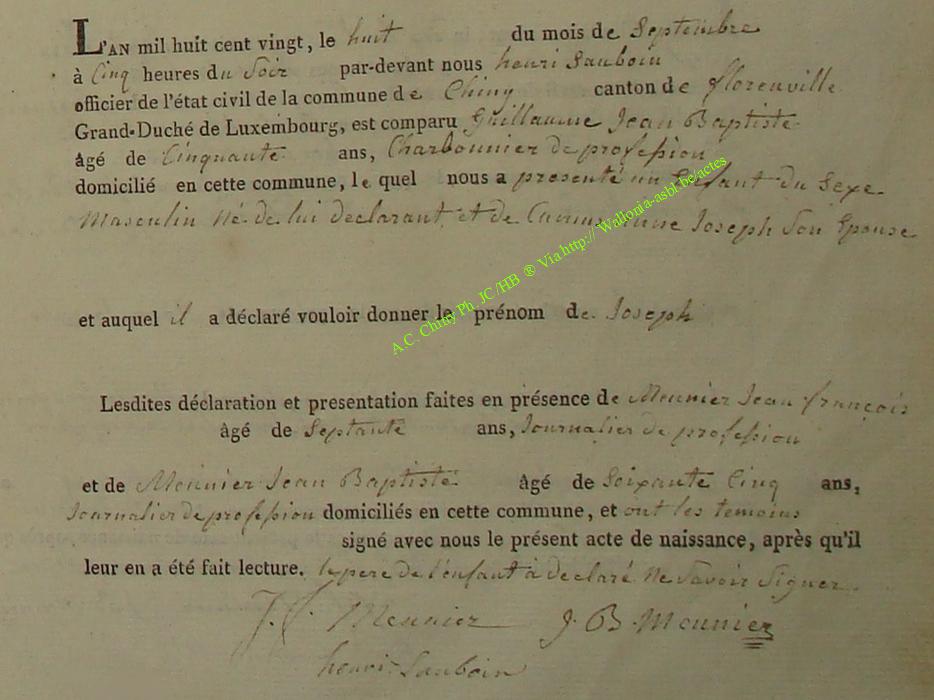 L'AN mil huit cent vingt, le huit du mois de Septembre
à Cinq heures du Soir par-devant nous henri Sauboin
officier de l'état civil de la commune de Chiny canton de florenville
Grand-Duché de Luxembourg, est comparu Guillaume Jean Baptiste
âgé de Cinquante ans, Charbonnier de profession
domicilié en cette commune, le quel nous a presenté un Enfant du Sexe
Masculin Né de lui declarant et de Joseph Son Epouse
et auquel il a déclaré vouloir donner le prénom de Joseph
Lesdites déclaration et presentation faites en présence de Meunier Jean françois
âgé de Septante ans, Journalier de profession
et de Meunier Jean Baptiste âgé de Soixante Cinq ans,
Journalier de profession domiciliés en cette commune, et ont les temoins
signé avec nous le présent acte de naissance, après qu'il
leur en a été fait lecture. le pere de l'enfant a declaré Ne Savoir Signer.
J. f. Meunier J. B. Meunier
henri Sauboin
A.C. Chiny Ph. JC/HB ® Via http:// Wallonia-asbl.be/actes